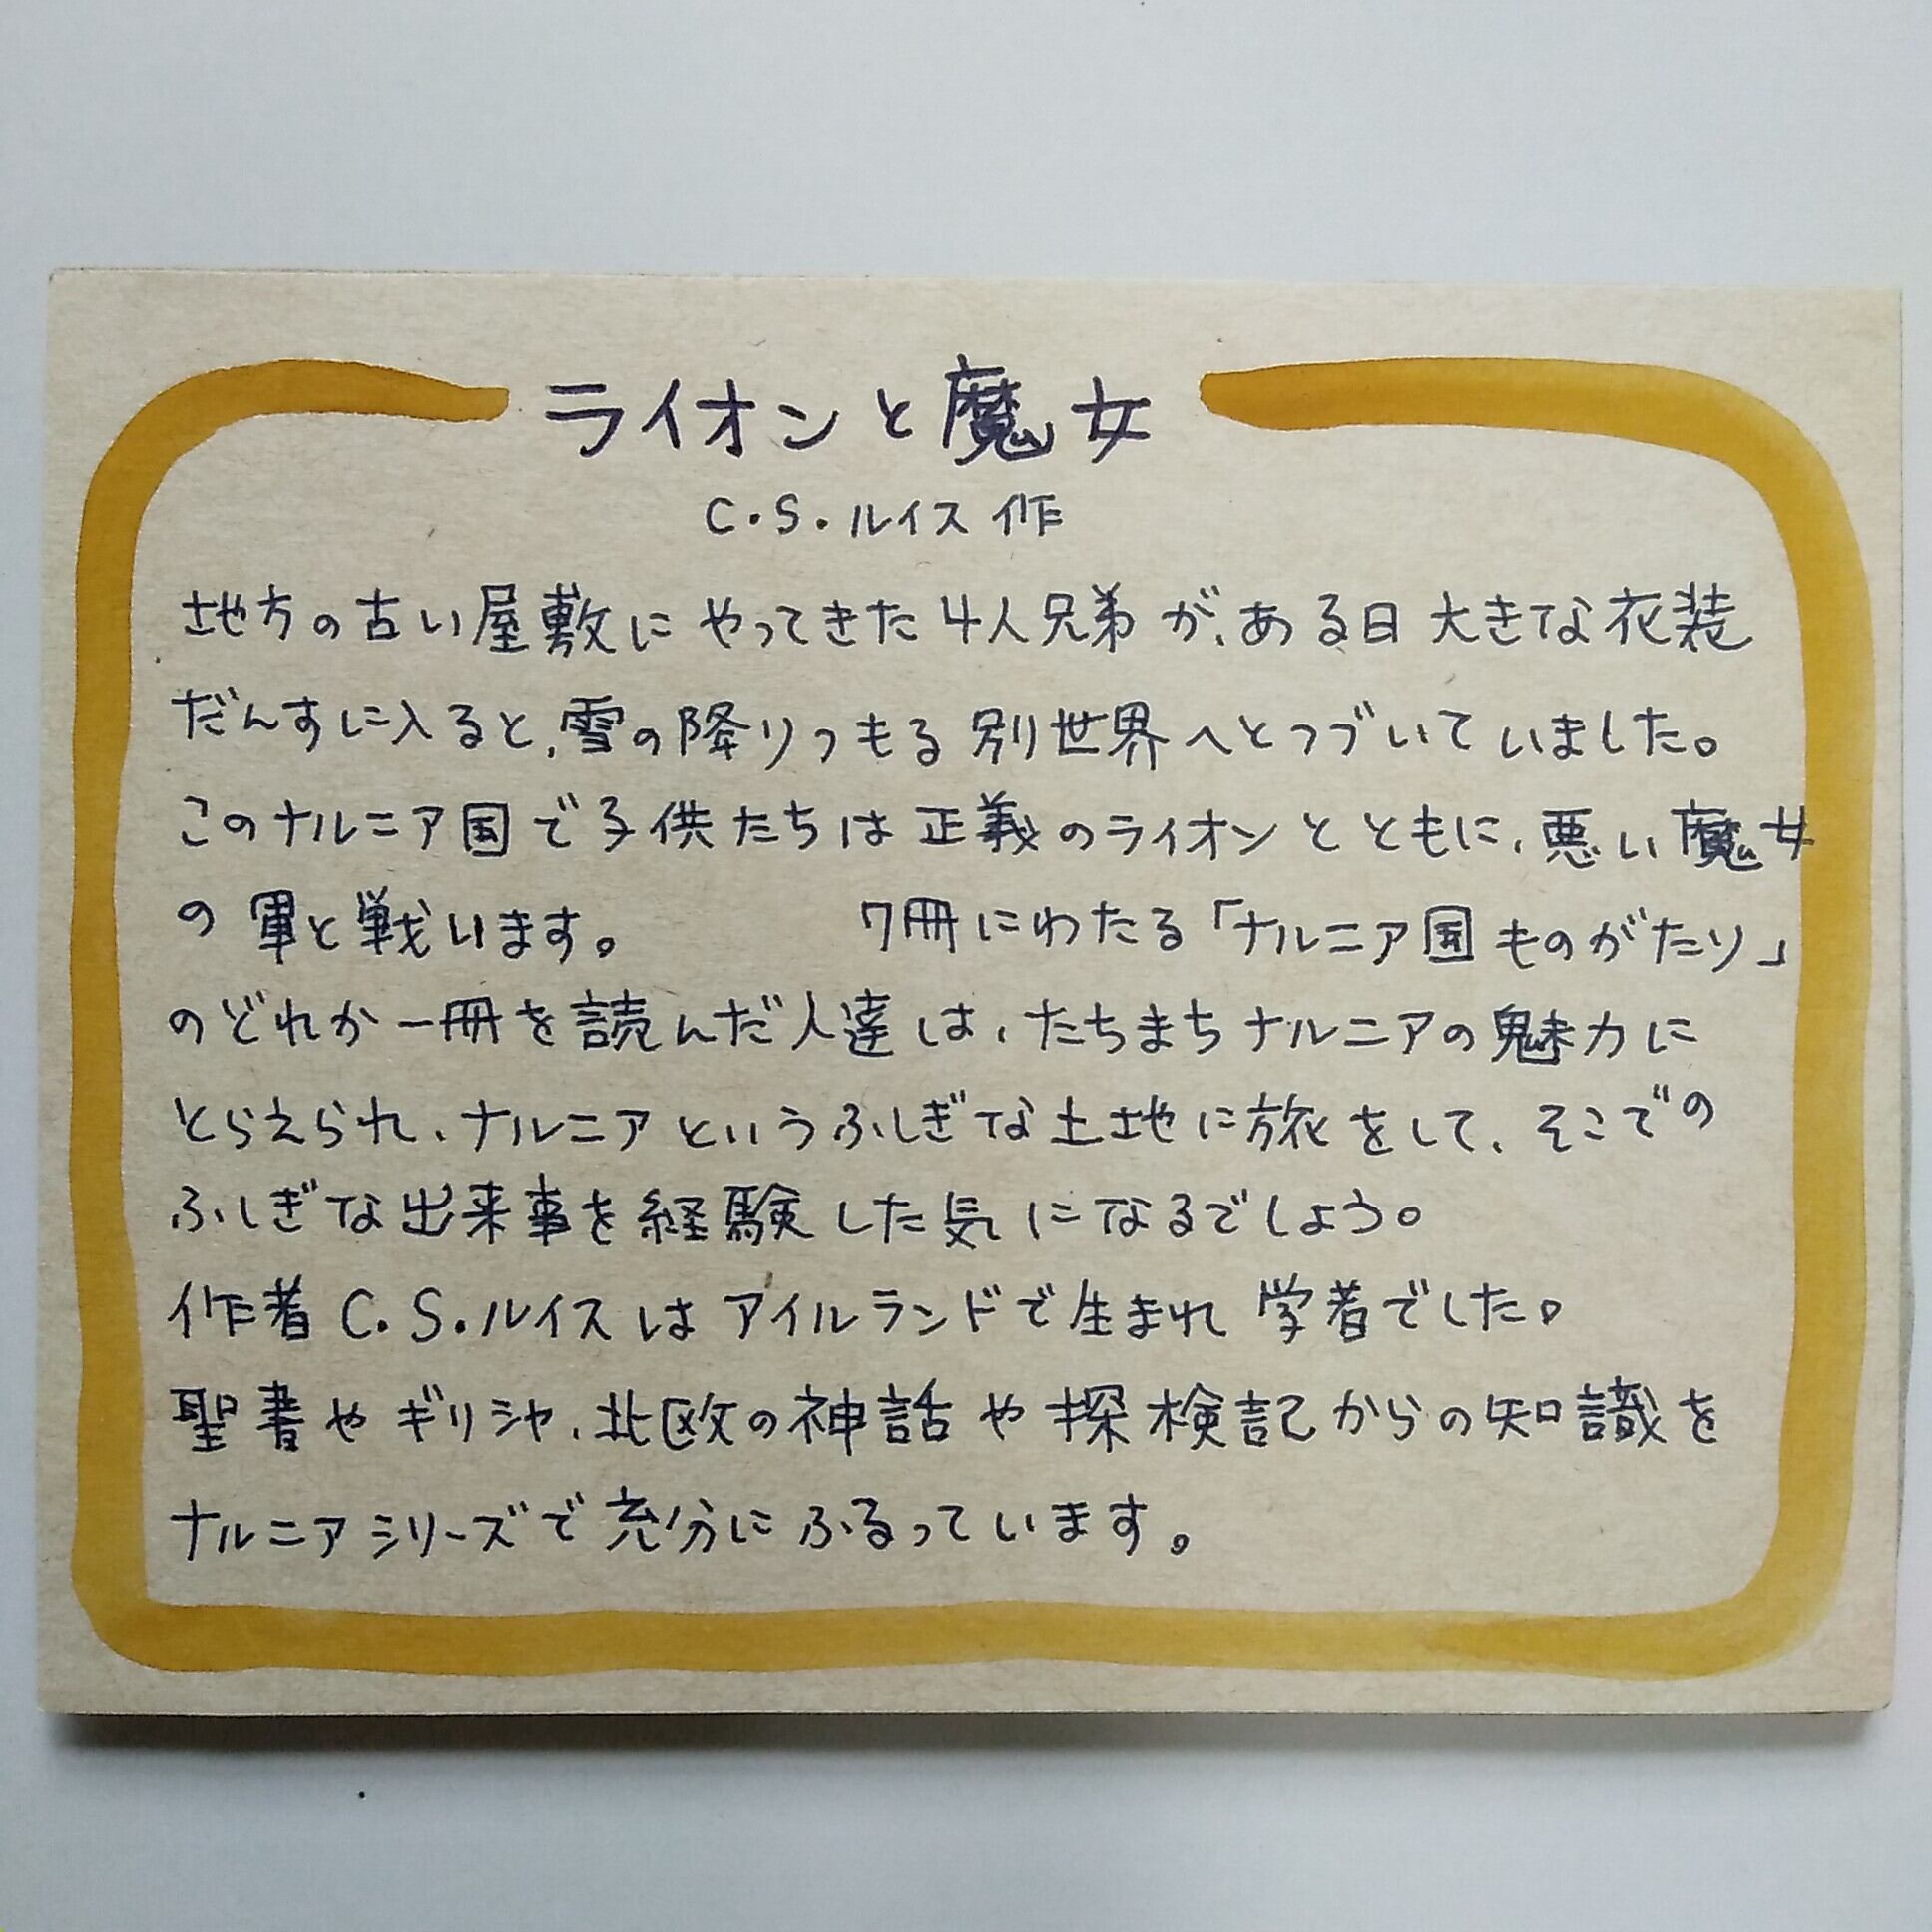 ライオンと魔女
C.S.ルイス 作
地方の古い屋敷にやってきた4人兄弟が、ある日大きな衣装
だんすに入ると、雪の降りつもる別世界へとつづいていました。
このナルニア国で子供たちは正義のライオンとともに、悪い魔女
の軍と戦います。 7冊にわたる「ナルニア国ものがたり」
のどれか一冊を読んだ人達は、たちまちナルニアの魅力に
とらえられ、ナルニアというふしぎな土地に旅をして、そこでの
ふしぎな出来事を経験した気になるでしょう。
作者 C.S.ルイスはアイルランドで生まれ 学者でした。
聖書やギリシャ、北欧の神話や探検記からの知識を
ナルニアシリーズで充分にふるっています。